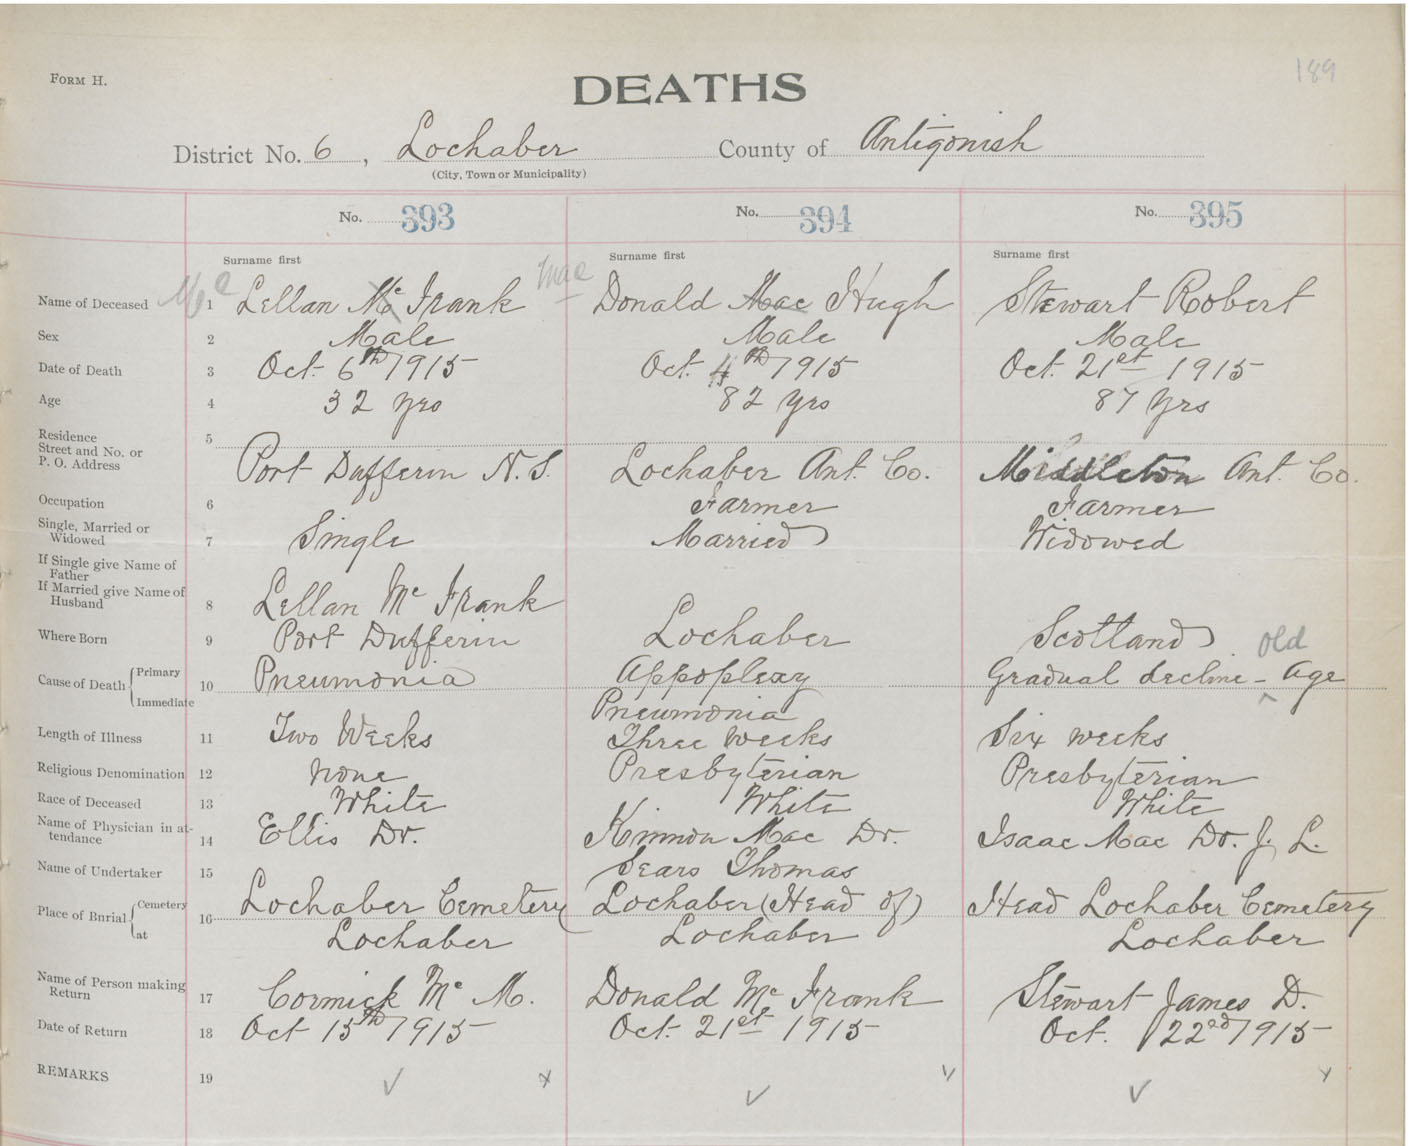 189
FORM H.
DEATHS
District No. 6, Lochaber County of Antigonish
(City, Town or Municipality)
No. 393 No. 394 No. 395
Surname first Surname first Surname first
Name of Deceased 1 Mc Lellan Mc Frank Mac Donald Mac Hugh Stewart Robert
Sex 2 Male Male Male
Date of Death 3 Oct. 6th 1915 Oct. 4th 1915 Oct. 21st 1915
Age 4 32 yrs 82 yrs 87 Yrs
Residence Street and No. or P. O. Address 5 Port Dufferin N. S. Lochaber Ant. Co. Middleton Ant. Co.
Occupation 6 Farmer Farmer
Single, Married or Widowed 7 Single Married Widowed
If Single give Name of Father
If Married give Name of Husband 8 Lellan Mc Frank
Where Born 9 Port Dufferin Lochaber Scotland
Cause of Death { Primary 10 Pneumonia Appoplexy Gradual decline - old Age
Immediate Pneumonia
Length of Illness 11 Two Weeks Three weeks Six weeks
Religious Denomination 12 None Presbyterian Presbyterian
Race of Deceased 13 White White White
Name of Physician in attendance 14 Ellis Dr. Kinnon Mac Dr. Isaac Mac Dr. J. L.
Name of Undertaker 15 Sears Thomas
Place of Burial { Cemetery 16 Lochaber Cemetery Lochaber (Head of) Head Lochaber Cemetery
at Lochaber Lochaber Lochaber
Name of Person making Return 17 Cormick Mc M. Donald Mc Frank Stewart James D.
Date of Return 18 Oct 15th 1915 Oct. 21st 1915 Oct. 22nd 1915
REMARKS 19